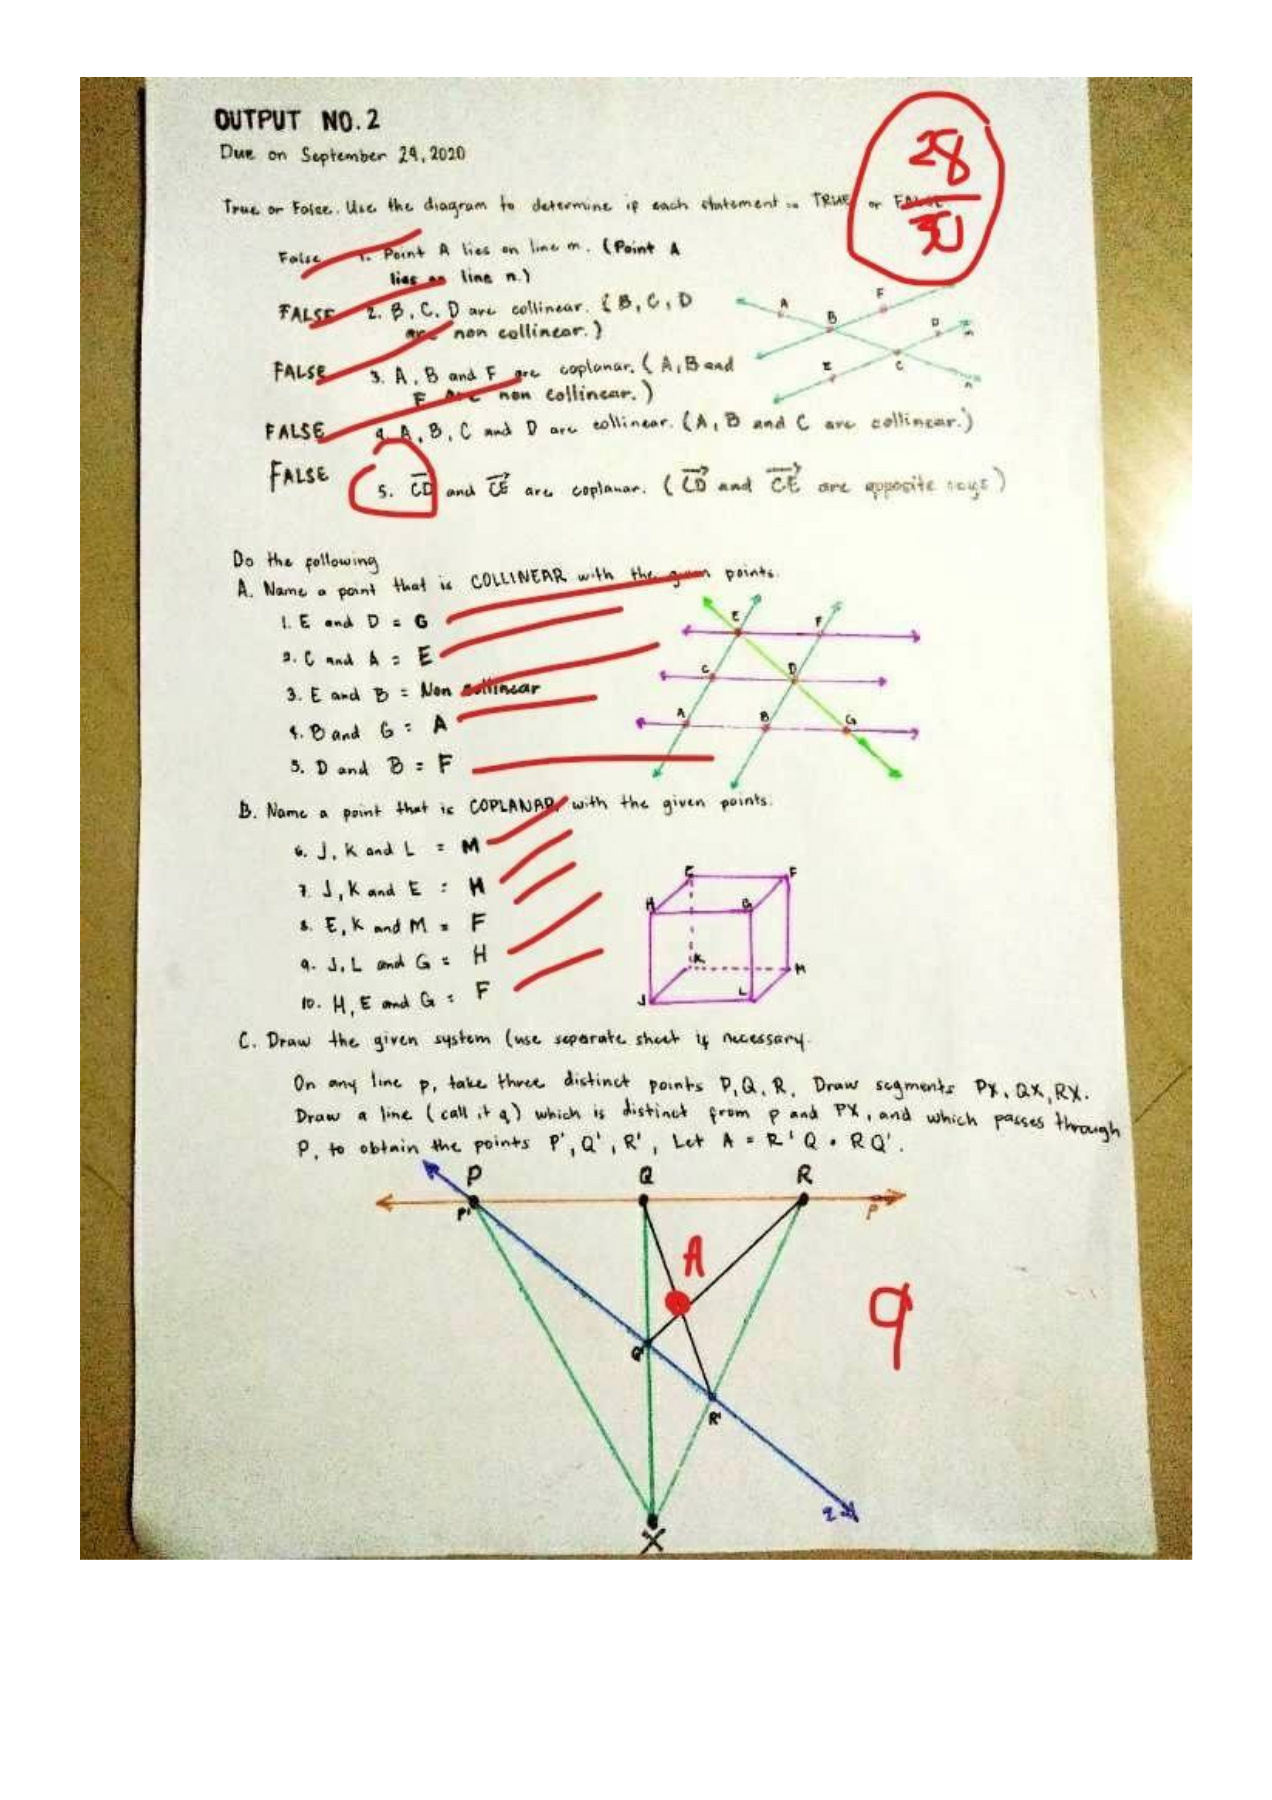 OUTPUT NO. 2
28
30
Due on September 29, 2020
True or False. Use the diagram to determine if each statement is TRUE or FALSE
False 1. Point A lies on line m. (Point A
lies on line n.)
FALSE 2. B, C, D are collinear. (B, C, D
are non collinear.)
FALSE 3. A, B and F are coplanar. (A, B and
F are non collinear.)
FALSE 4. A, B, C and D are collinear. (A, B and C are collinear.)
FALSE 5. CD and CE are coplanar. (CD and CE are opposite rays)
A
F
B
D
E
C
m
n
Do the following
A. Name a point that is COLLINEAR with the given points.
1. E and D = G
2. C and A = E
3. E and B = Non collinear
4. B and G = A
5. D and B = F
E
F
C
D
A
B
G
B. Name a point that is COPLANAR with the given points.
6. J, K and L = M
7. J, K and E = H
8. E, K and M = F
9. J, L and G = H
10. H, E and G = F
E
F
H
G
K
M
J
L
C. Draw the given system (use separate sheet if necessary.
On any line p, take three distinct points P, Q, R. Draw segments PX, QX, RX.
Draw a line (call it q) which is distinct from p and PX, and which passes through
P, to obtain the points P', Q', R', Let A = R'Q • RQ'.
P
Q
R
P'
p
A
9
Q'
R'
q
X